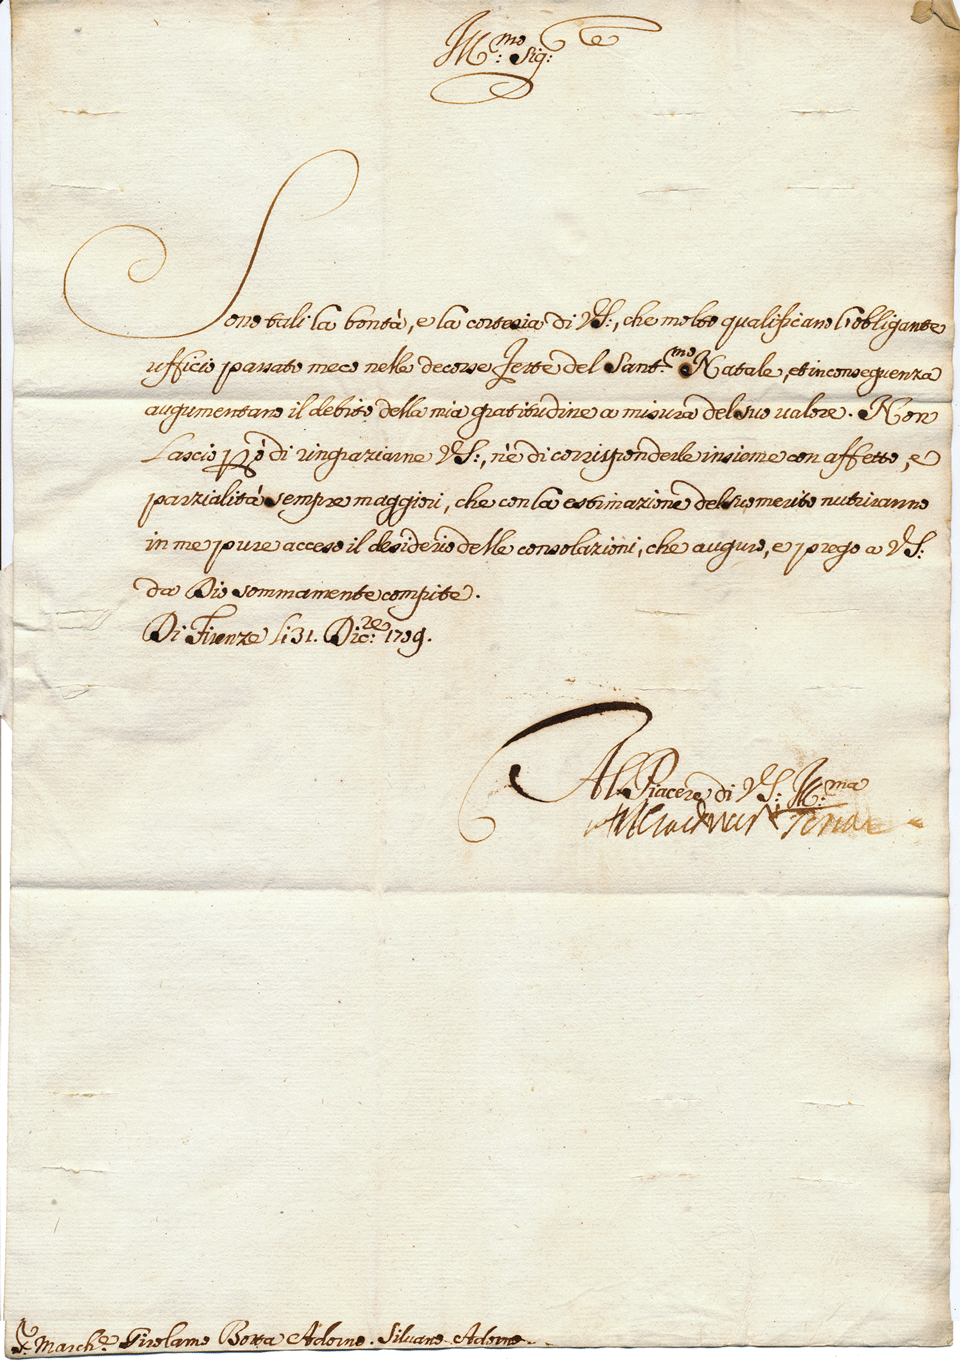 Ill:mo Sig:re
Sono tali la bontà, e la cortesia di VS:, che molto qualificano l'obligante
ufficio passato meco nelle decorse Feste del Sant:mo Natale, et in conseguenza
augumentano il debito della mia gratitudine a misura del suo valore. Non
Lascio però di ringraziarne VS:, nè di corrisponderle insieme con affetto, e
parzialità sempre maggiori, che con la estimazione del suo merito nutriranno
in me pure acceso il desiderio delle consolazioni, che auguro, e prego a VS:
da Dio sommamente compite.
Di Firenze li 31. Dic:re 1709.
Al Piacere di VS: Ill:ma
S: March:e Girolamo Botta Adorno. Silvano Adorno.